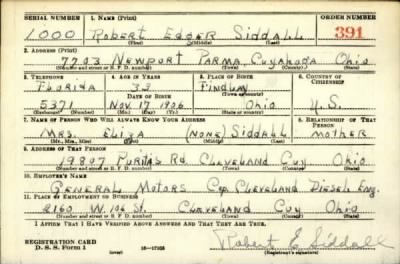 SERIAL NUMBER 1. NAME (Print) ORDER NUMBER
1000 Robert Edger Siddall 391
(First) (Middle) (Last)
2. ADDRESS (Print)
7703 Newport Parma, Cuyahoga Ohio
(Number and street or R. F. D. number) (Town) (County) (State)
3. TELEPHONE 4. AGE IN YEARS 5. PLACE OF BIRTH 6. COUNTRY OF CITIZENSHIP
Florida 33 Findlay
DATE OF BIRTH (Town or county)
5371 Nov. 17 1906 Ohio U.S.
(Exchange) (Number) (Mo.) (Day) (Yr.) (State or country)
7. NAME OF PERSON WHO WILL ALWAYS KNOW YOUR ADDRESS 8. RELATIONSHIP OF THAT PERSON
Mrs. Eliza (None) Siddall Mother
(Mr., Mrs., Miss) (First) (Middle) (Last)
9. ADDRESS OF THAT PERSON
19807 Puritas Rd. Cleveland Cuy Ohio
(Number and street or R. F. D. number) (Town) (County) (State)
10. EMPLOYER'S NAME
General Motors Cop Cleveland Diesel Eng.
11. PLACE OF EMPLOYMENT OR BUSINESS
2160 W. 106 St. Cleveland Cuy Ohio
(Number and street or R. F. D. number) (Town) (County) (State)
I AFFIRM THAT I HAVE VERIFIED ABOVE ANSWERS AND THAT THEY ARE TRUE.
REGISTRATION CARD
D. S. S. Form 1
Robert E Siddall
(Registrant's signature)